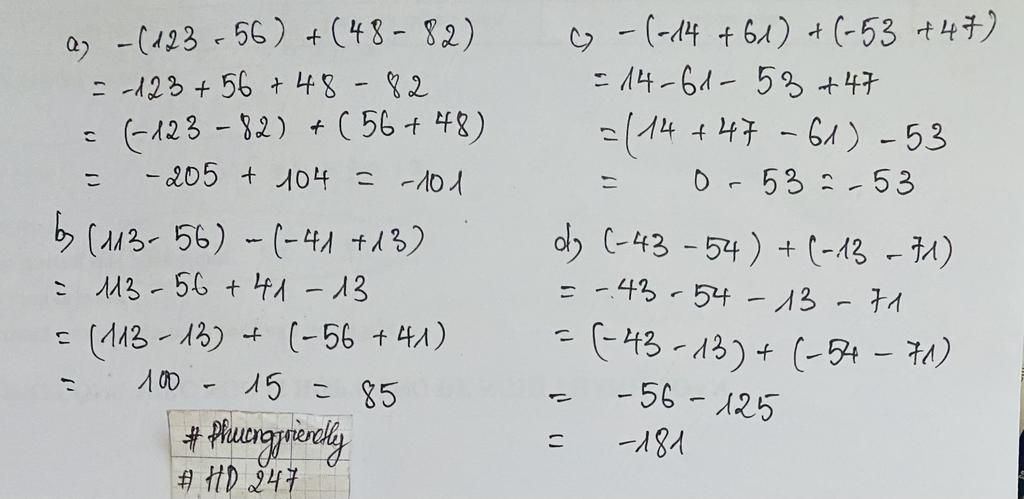 a) -(123 - 56) + (48 - 82)
= -123 + 56 + 48 - 82
= (-123 - 82) + (56 + 48)
= -205 + 104 = -101
b) (113 - 56) - (-41 + 13)
= 113 - 56 + 41 - 13
= (113 - 13) + (-56 + 41)
= 100 - 15 = 85
# Phuongfriendly
# HD 247
c) -(-14 + 61) + (-53 + 47)
= 14 - 61 - 53 + 47
= (14 + 47 - 61) - 53
= 0 - 53 = -53
d) (-43 - 54) + (-13 - 71)
= -43 - 54 - 13 - 71
= (-43 - 13) + (-54 - 71)
= -56 - 125
= -181